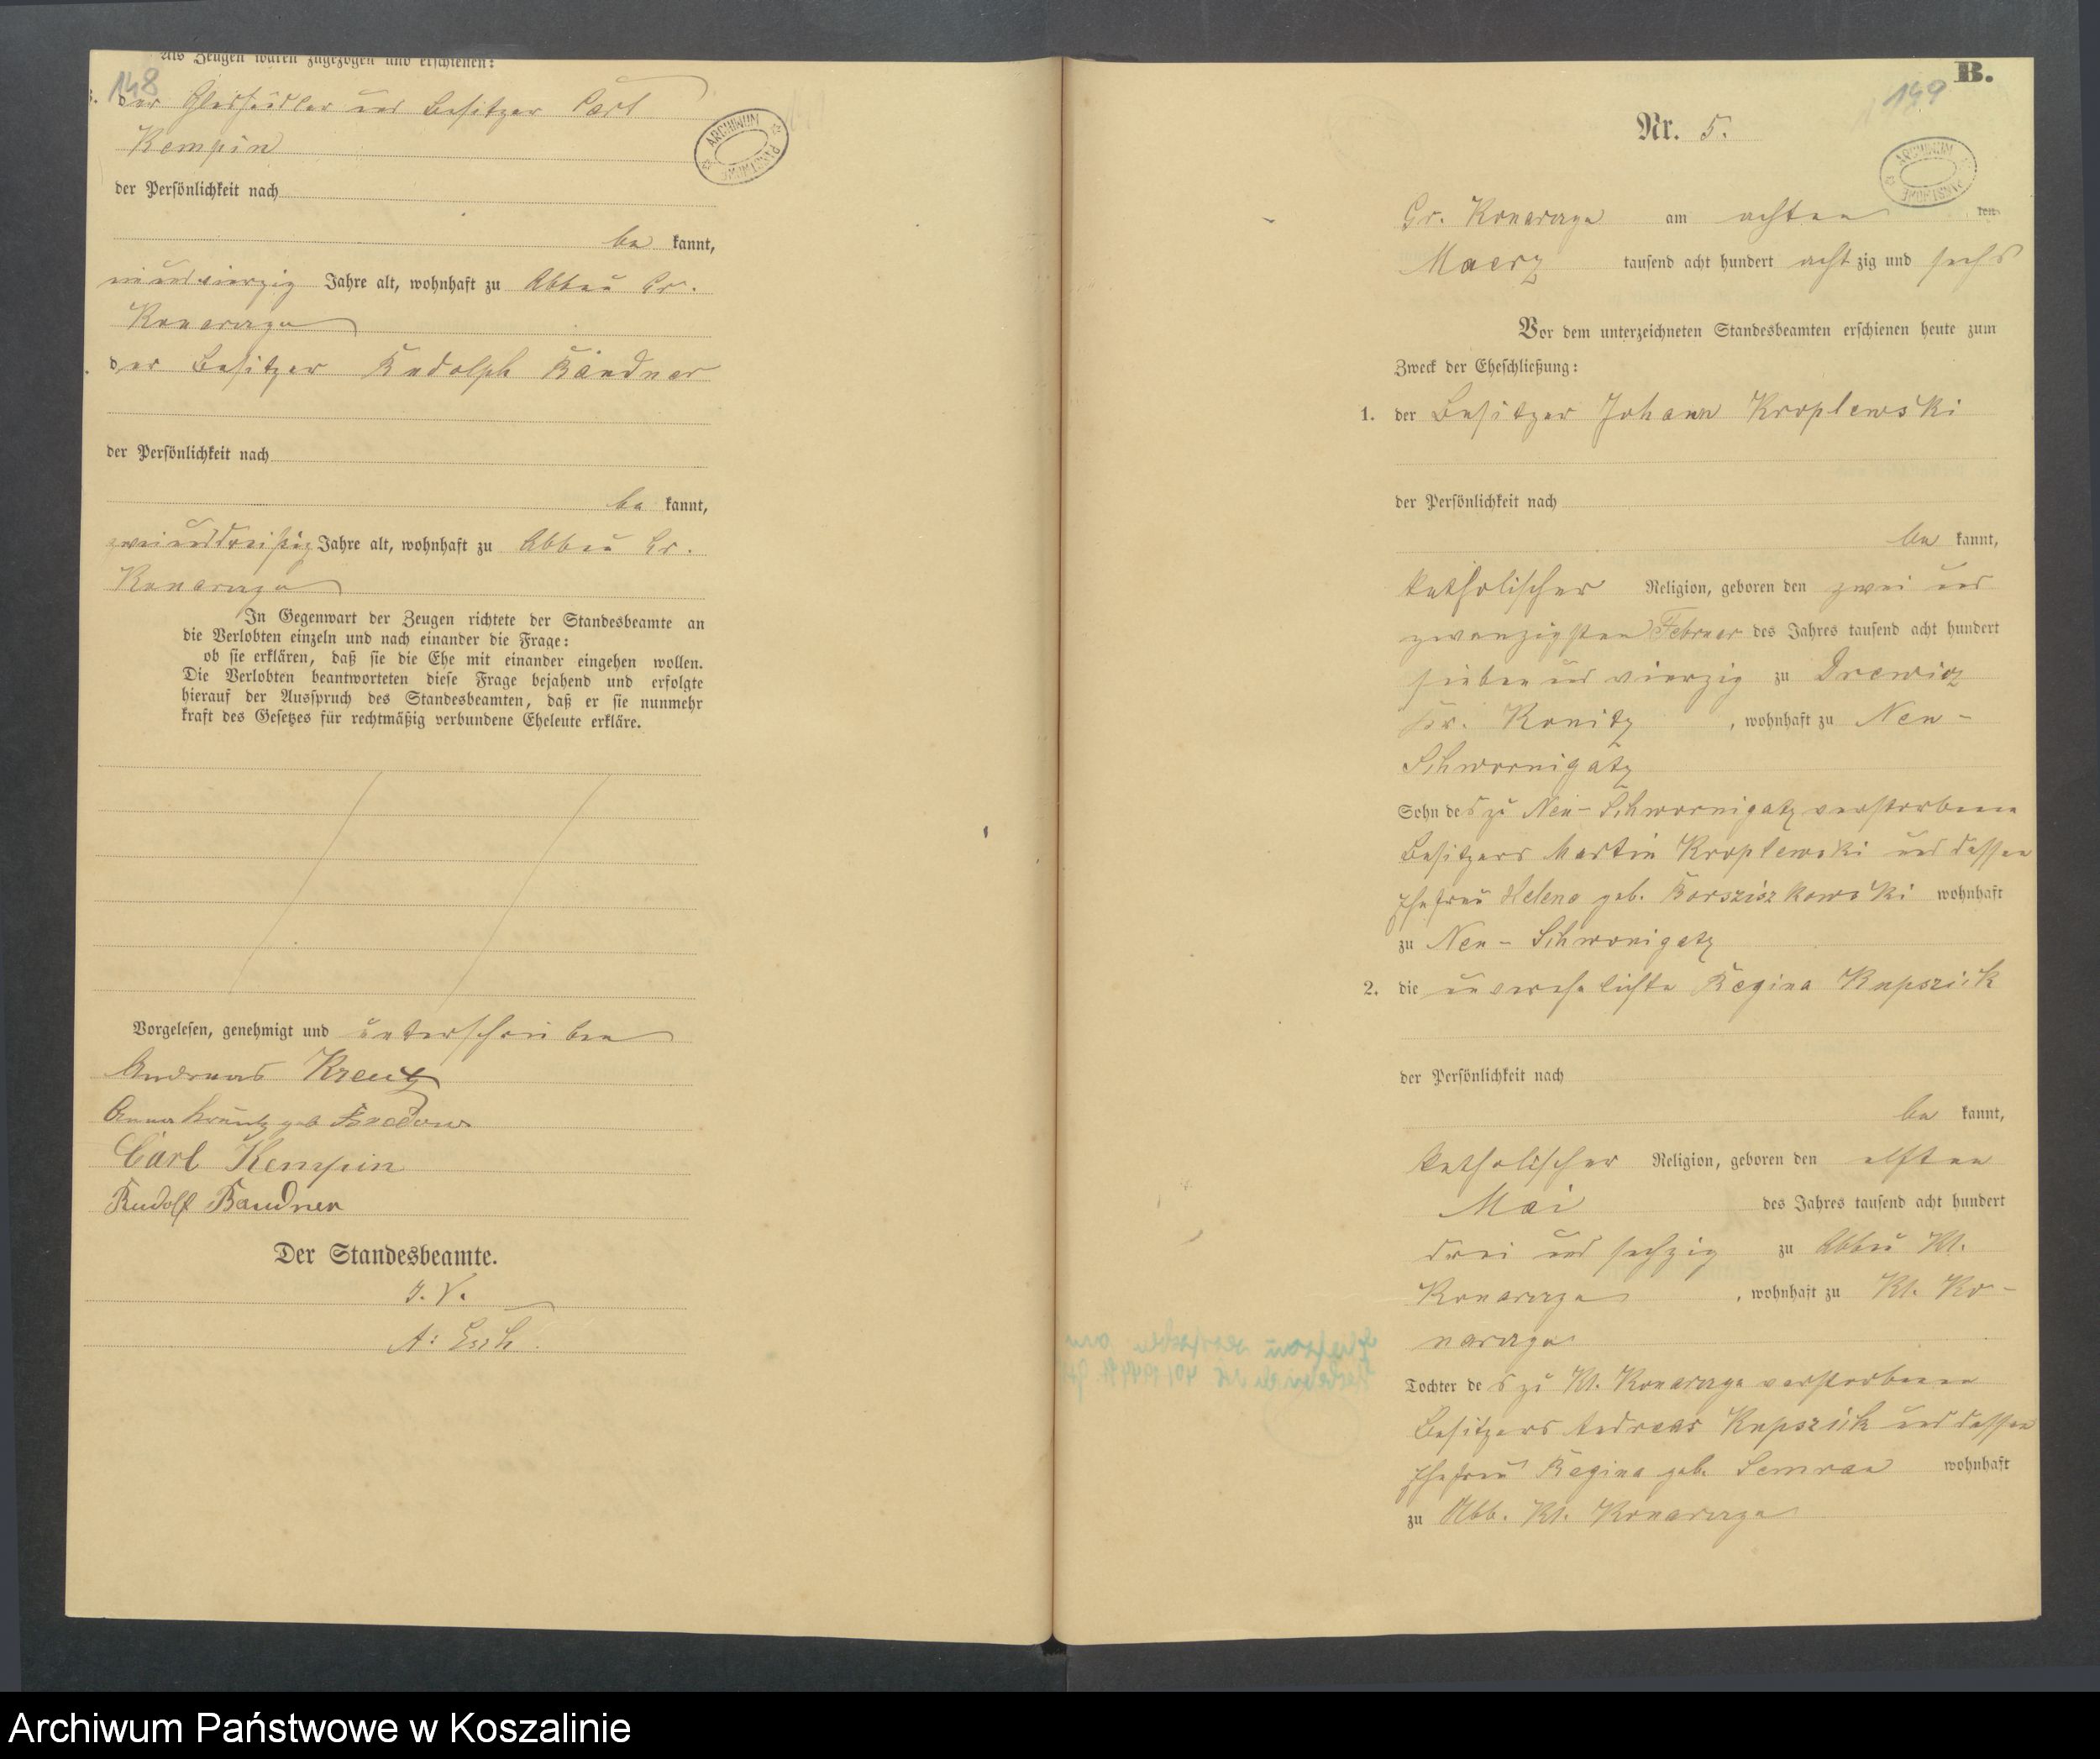 Als Zeugen waren zugezogen und erschienen:
148
3. der und Besitzer Carl
Kempin
der Persönlichkeit nach
be kannt,
neunundvierzig Jahre alt, wohnhaft zu Abbau Gr.
Konarczyn
der Besitzer Rudolph Baudner
der Persönlichkeit nach
be kannt,
zweiunddreißig Jahre alt, wohnhaft zu Abbau Gr.
Konarczyn
In Gegenwart der Zeugen richtete der Standesbeamte an
die Verlobten einzeln und nach einander die Frage:
ob sie erklären, daß sie die Ehe mit einander eingehen wollen.
Die Verlobten beantworteten diese Frage bejahend und erfolgte
hierauf der Ausspruch des Standesbeamten, daß er sie nunmehr
kraft des Gesetzes für rechtmäßig verbundene Eheleute erkläre.
Vorgelesen, genehmigt und unterschrieben
Andreas Kreutz
Anna Kreutz geb
Carl Kempin
Rudolf Baudner
Der Standesbeamte.
I. V.
ARCHIWUM PAŃSTWOWE
B.
149
Nr. 5.
ARCHIWUM PAŃSTWOWE
Gr. Konarczyn am achten ten
Maerz tausend acht hundert acht zig und sechs
Vor dem unterzeichneten Standesbeamten erschienen heute zum
Zweck der Eheschließung:
1. der Besitzer Johann Kroplewski
der Persönlichkeit nach
be kannt,
katholischer Religion, geboren den zwei und
zwanzigsten Februar des Jahres tausend acht hundert
sieben und vierzig zu Drewicz
Kr. Konitz, wohnhaft zu Neu-
Schwornigatz
Sohn des zu Neu-Schwornigatz verstorbenen
Besitzers Martin Kroplewski und dessen
Ehefrau Helena geb. Borsziszkowski wohnhaft
zu Neu-Schwonigatz
2. die unverehelichte Regina Kupszik
der Persönlichkeit nach
be kannt,
katholischer Religion, geboren den elften
Mai des Jahres tausend acht hundert
drei und sechzig zu Abbau Kl.
Konarczyn, wohnhaft zu Kl. Ko-
narczyn
Tochter des zu Kl. Konarczyn verstorbenen
Besitzers Andreas Kupszik und dessen
Ehefrau Regina geb. Semrau wohnhaft
zu Abb. Kl. Konarczyn
Archiwum Państwowe w Koszalinie